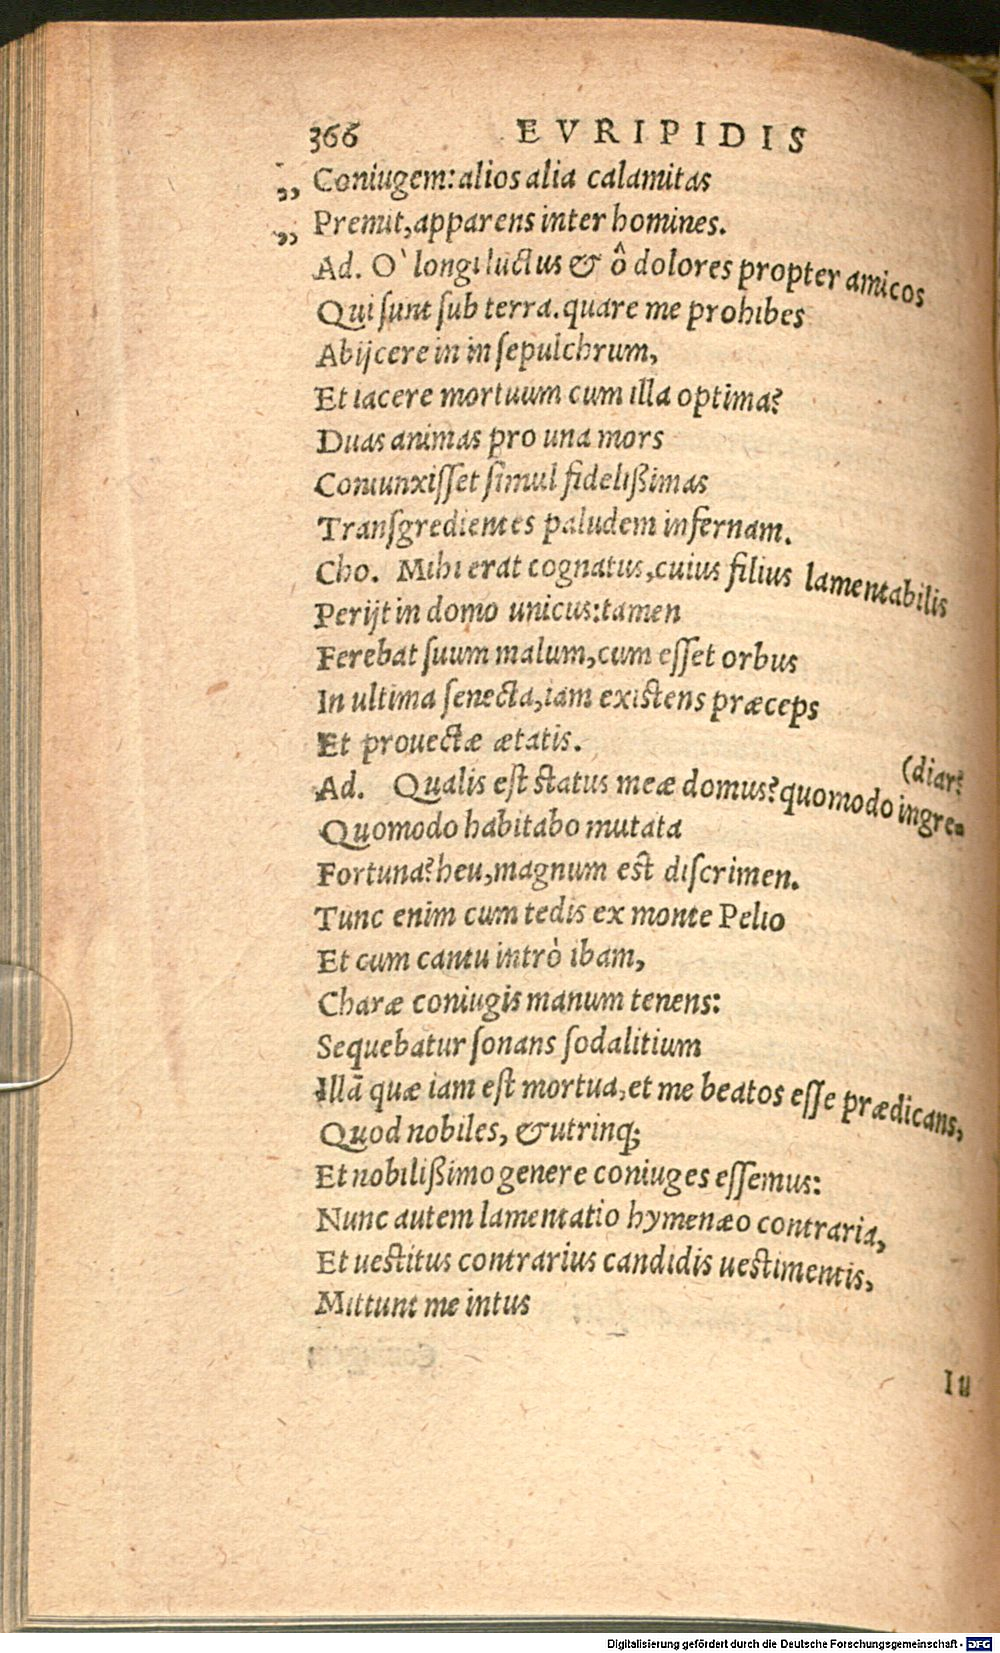 366 EVRIPIDIS
„ Coniugem: alios alia calamitas
„ Premit, apparens inter homines.
Ad. O` longi luctus & ô dolores propter amicos
Qui sunt sub terra. quare me prohibes
Abijcere in in sepulchrum,
Et iacere mortuum cum illa optima?
Duas animas pro una mors
Coniunxisset simul fidelißimas
Transgredientes paludem infernam.
Cho. Mihi erat cognatus, cuius filius lamentabilis
Perijt in domo unicus: tamen
Ferebat suum malum, cum esset orbus
In ultima senecta, iam existens præceps
Et prouectæ ætatis.
(diar?
Ad. Qualis est status meæ domus? quomodo ingre-
Quomodo habitabo mutata
Fortuna? heu, magnum est discrimen.
Tunc enim cum tedis ex monte Pelio
Et cum cantu intrò ibam,
Charæ coniugis manum tenens:
Sequebatur sonans sodalitium
Illā quæ iam est mortua, et me beatos esse prædicans,
Quod nobiles, & utrinq;
Et nobilißimo genere coniuges essemus:
Nunc autem lamentatio hymenæo contraria,
Et uestitus contrarius candidis uestimentis,
Mittunt me intus
Iu
Digitalisierung gefördert durch die Deutsche Forschungsgemeinschaft - DFG